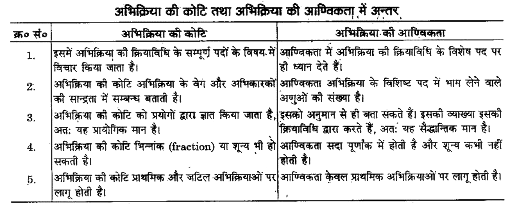 अभिक्रिया की कोटि तथा अभिक्रिया की आण्विकता में अन्तर
क्र० सं० अभिक्रिया की कोटि अभिक्रिया की आण्विकता
1. इसमें अभिक्रिया की क्रियाविधि के सम्पूर्ण पदों के विषय में आण्विकता में अभिक्रिया की क्रियाविधि के विशेष पद पर
विचार किया जाता है। ही ध्यान देते हैं।
2. अभिक्रिया की कोटि अभिक्रिया के वेग और अभिकारकों आण्विकता अभिक्रिया के विशिष्ट पद में भाग लेने वाले
की सान्द्रता में सम्बन्ध बताती है। अणुओं की संख्या है।
3. अभिक्रिया की कोटि को प्रयोगों द्वारा ज्ञात किया जाता है, इसको अनुमान से ही बता सकते हैं। इसकी व्याख्या इसकी
अतः यह प्रायोगिक मान है। क्रियाविधि द्वारा करते हैं, अतः यह सैद्धान्तिक मान है।
4. अभिक्रिया की कोटि भिन्नांक (fraction) या शून्य भी हो आण्विकता सदा पूर्णांक में होती है और शून्य कभी नहीं
सकती है। होती है।
5. अभिक्रिया की कोटि प्राथमिक और जटिल अभिक्रियाओं पर आण्विकता केवल प्राथमिक अभिक्रियाओं पर लागू होती है।
लागू होती है।